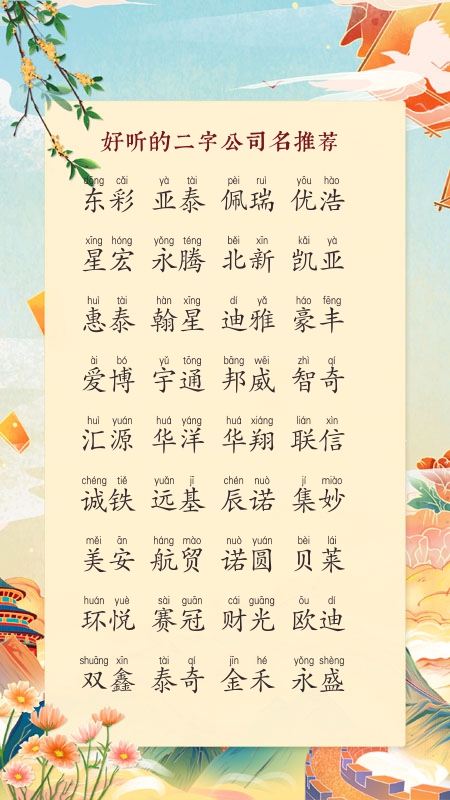 好听的二字公司名推荐
dōng cǎi yà tài pèi ruì yōu hào
东彩 亚泰 佩瑞 优浩
xīng hóng yǒng téng běi xīn kǎi yà
星宏 永腾 北新 凯亚
huì tài hàn xīng dí yǎ háo fēng
惠泰 翰星 迪雅 豪丰
ài bó yǔ tōng bāng wēi zhì qí
爱博 宇通 邦威 智奇
huì yuán huá yáng huá xiáng lián xìn
汇源 华洋 华翔 联信
chéng tiě yuǎn jī chén nuò jí miào
诚铁 远基 辰诺 集妙
měi ān háng mào nuò yuán bèi lái
美安 航贸 诺圆 贝莱
huán yuè sài guān cái guāng ōu dí
环悦 赛冠 财光 欧迪
shuāng xīn tài qí jīn hé yǒng shèng
双鑫 泰奇 金禾 永盛